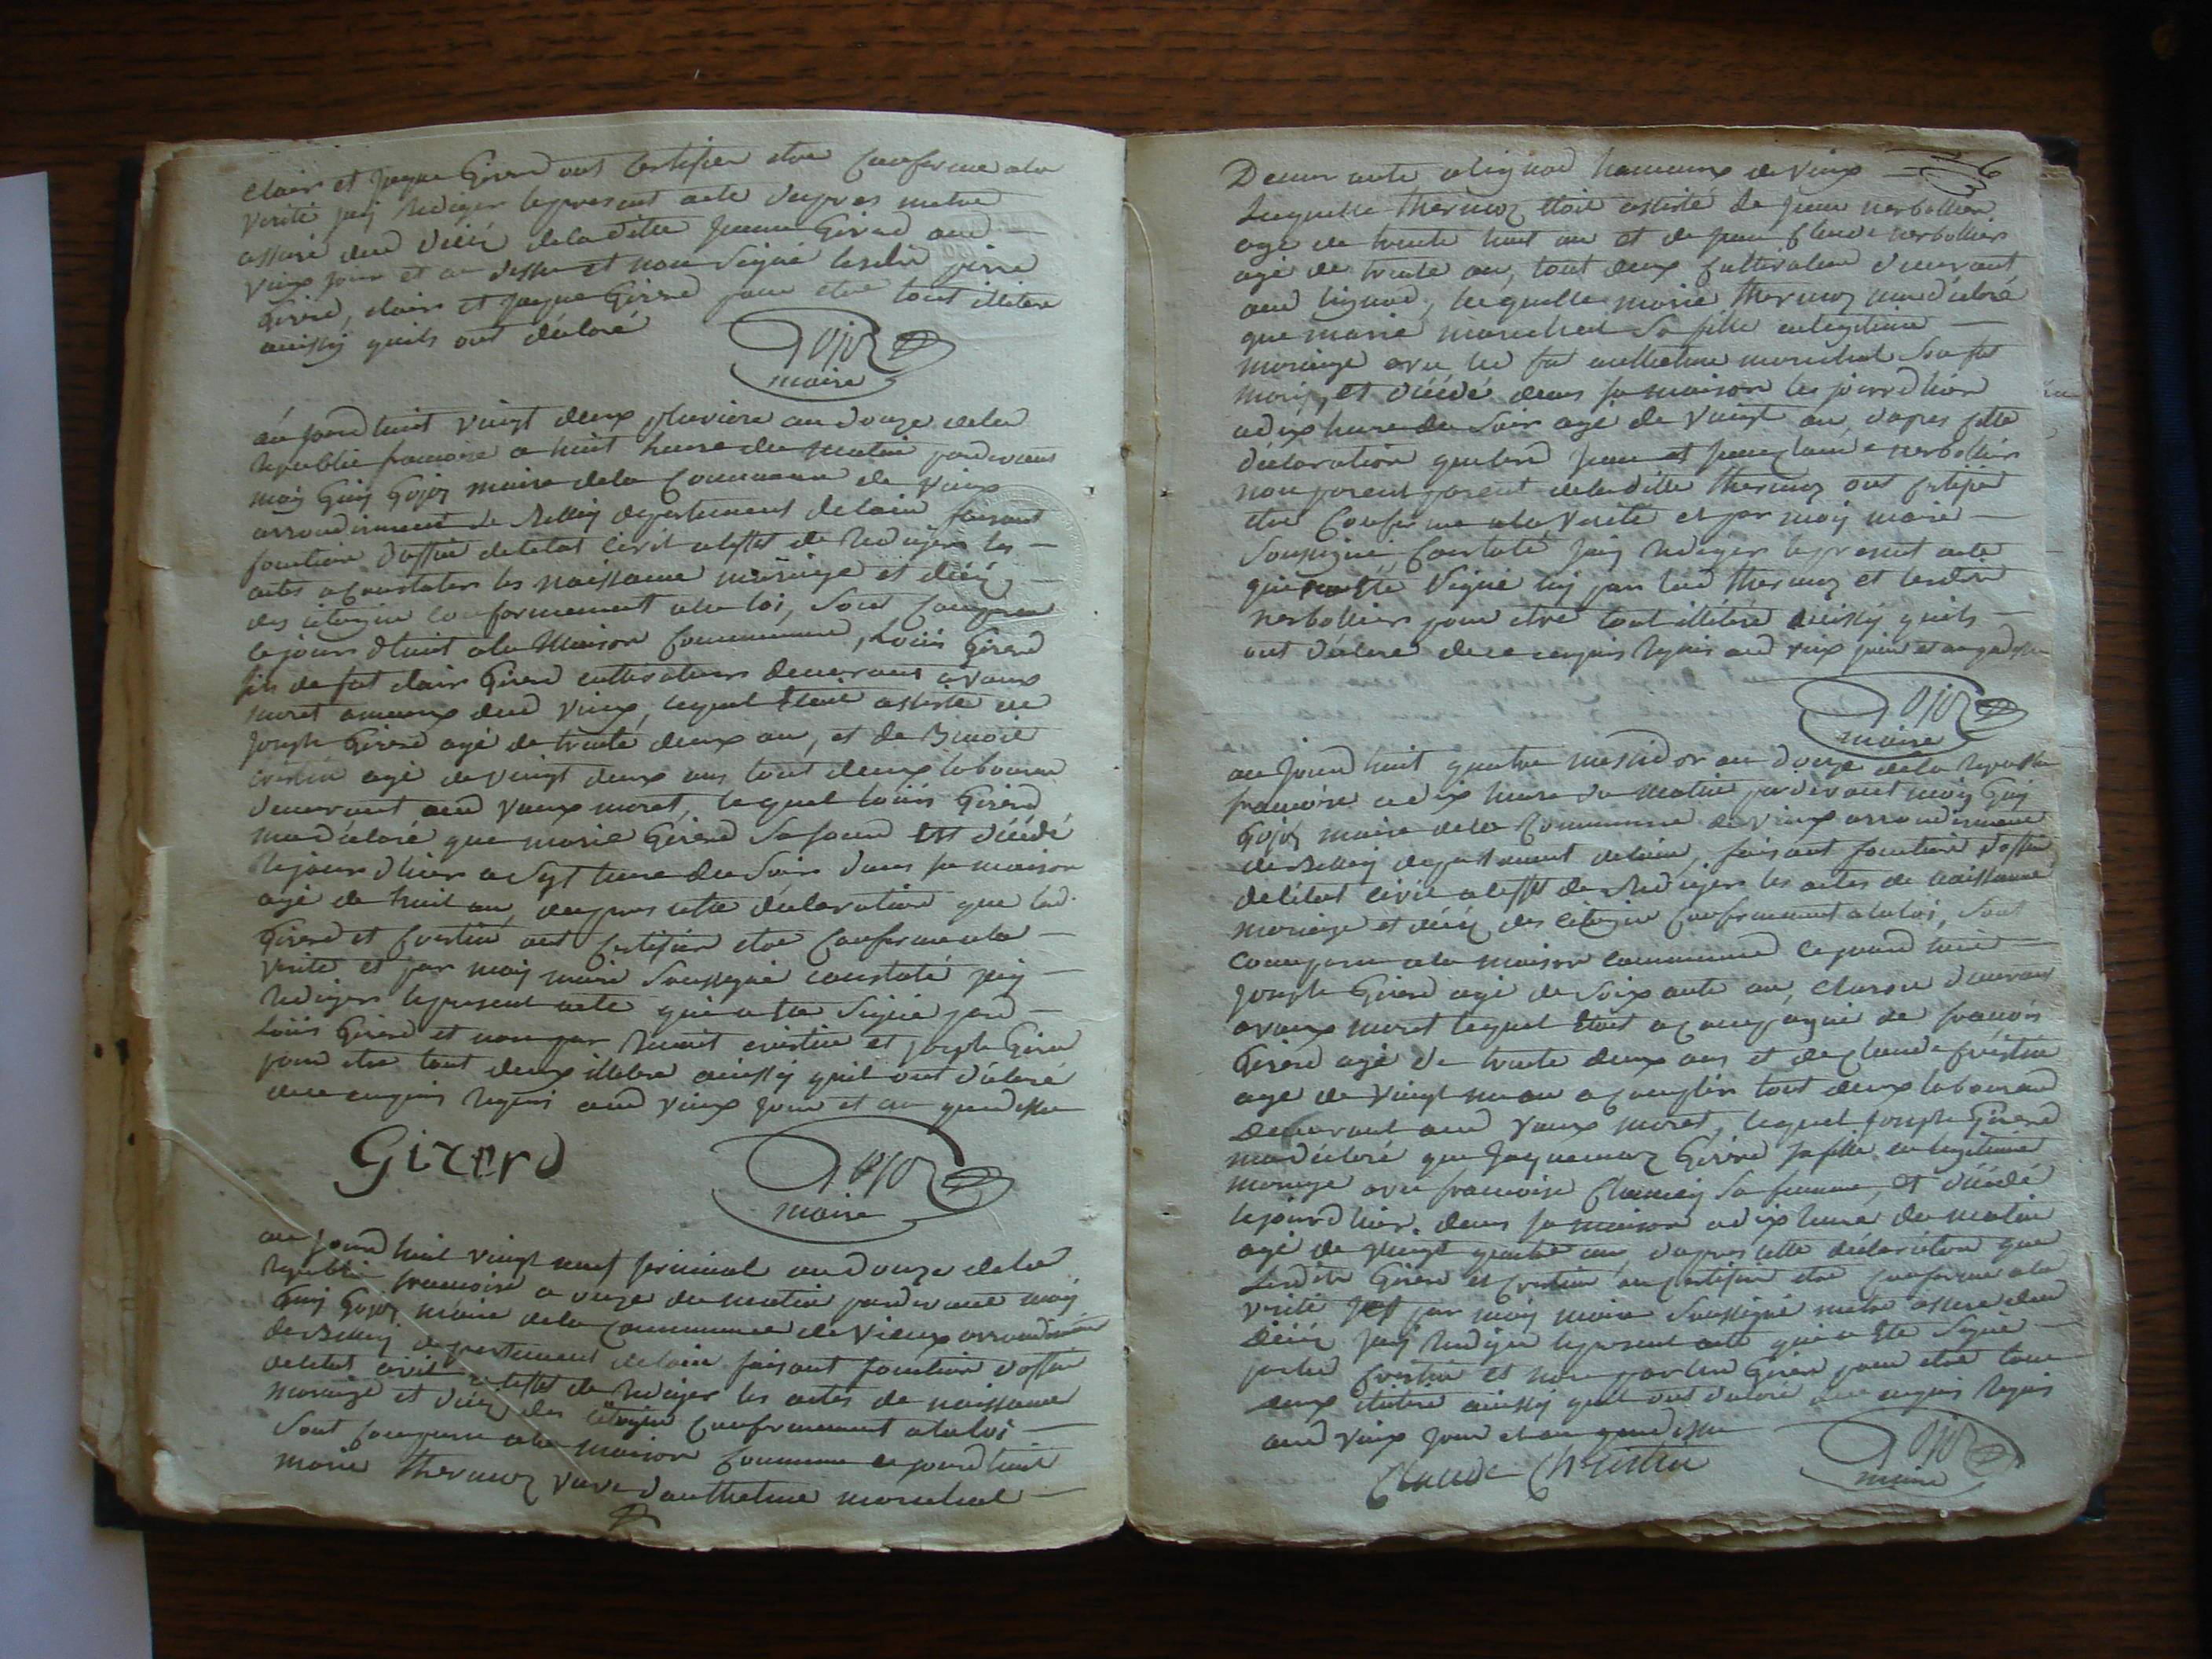 Clair et Jaque Girerd ont Certifier etre Conforme ala
verité jaij Rediger lepresent acte dapres metre
assuré dud déces deladitte Girerd aud
vieux jour et an dessus et non Signé lesdis pierre
Girerd, clair et Jaque Girerd pour etre tout illitere
ainssy quils ont déclaré
Gojoz
maire
au jourdhuit vingt deux pluviose an douze dela
Republic francoise a huit heure du matin pardevant
moij Guij Gojoz maire dela Commune de vieux
arrondissement de Belleij departement delain faisant
fonction doffisié deletat Civil aleffet de Redijer les
actes a Constater les naissance mariage et décés
des citoyin Conformement ala loi, Sont Comparu
cejourdhuit ala Maison Commune, Loüis Girerd
fils de fut clair Girerd cultivateur demeurant avaux
moret ameaux dud vieux, lequel Etait assisté de
Joseph Girerd agé de trente deux an, et de Binoit
agé de vingt deux ans tout deux laboureur
demeurant aud vaux moret, lequel loüis Girerd
madéclaré que marie Girerd Sa Soeur Est décédé
lejourdhier a Sept heure du Soir dans sa maison
agé de huit an, dapres cette déclaration que led
Girerd et Crestin ont Certifier etre Conforme ala
verité et par moij maire Soussigné constaté jaij
Rediger lepresent acte qui a Ete Signé par
Loüis Girerd et non par Benoit crestin et joseph Girerd
pour etre tout deux illitere ainssij quil ont déclaré
dece enquis Requis aud vieux jour et an quedessu
Girerd
Gojoz
maire
au jourdhuit vingt neuf jerminal an douze dela
Republic francoise a onze du matin pardevant moij
Guij Gojoz maire dela Commune de vieux arrondissement
de Belleij departement delain faisant fonction doffisié
deletat civil aleffet de Redijer les actes de naissance
mariage et décés des citoyin Conformement alaloi
Sont Comparu ala maison Commune ce jourdhuit
marie thermoz veuve danthelme marechal
Demeurante alignod hameaux de vieux
Laquelle thermoz Etoit assisté de jean nerbollier
agé de trente huit an et de jean Claude nerbollier
agé de trente an, tout deux Cultivateur demeurant
aud lignod, laquelle marie thermoz madéclaré
que marie marechal Sa fille enlegitime
mariage avec le fut anthelme marechal Son fut
marij, et décédé dans sa maison les jourdhier
adix heure du Soir agé de vaingt an, dapres cette
déclaration que led jean et jean Claude nerbollier
non parent deladitte thermoz ont Certifié
etre Conforme ala verité et par moij maire
Soussigné Constaté jaij Rediger le present acte
qui Ete Signé nij par lad thermoz et lesdis
nerbollier pour etre tout illitéré ainssij quils
ont déclaré dece enquis Requis aud vieux jour et an quedessu
Gojoz
maire
au jourdhuit quatre messidor an douze dela Republic
francoise adix heure du matin pardevant moij Guij
Gojoz maire dela Commune de vieux arrondissement
de Belleij departement delain, faisant fonction doffisié
deletat civil aleffet de Redijer les actes de naissance
mariage et décés des citoyin Conformement alaloi, Sont
Comparu ala maison commune cejourdhuit
joseph Girerd agé de Soixante an, demeurant
avaux moret lequel Etoit acompagné de francois
Girerd agé de trente deux ans et de Claude Crestin
agé de vingt an acomplis tout deux laboureur
demeurant aud vaux moret, lequel joseph Girerd
madéclaré que jaquemaz Girerd sa fille en legitime
mariage avec francoise Sa femme, et décédé
lejourdhier dans sa maison adix heure du matin
agé de vingt quatre ans, dapres cette déclaration que
lesdits Girerd et Crestin on Certifier etre Conforme ala
verité par moij maire Soussigné metre assuré dud
décés jaij Rediger lepresent acte qui a Ete Signé
par led Crestin et non par led Girerd pour etre tous
deux illitere ainssij quil ont declaré dece enquis Requis
aud vieux jour et an quedessu
Claude Chrestin
Gojoz
maire